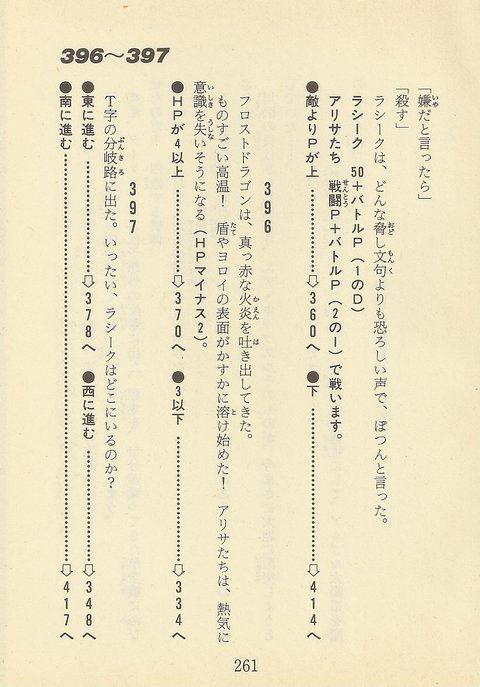 396〜397
「嫌だと言ったら」
「殺す」
ラシークは、どんな脅し文句よりも恐ろしい声で、ぽつんと言った。
ラシーク　50＋バトルP（1のD）
アリサたち　戦闘P＋バトルP（2のI）で戦います。
●敵よりPが上……⇨360へ　●下……⇨414へ
396
フロストドラゴンは、真っ赤な火炎を吐き出してきた。
ものすごい高温！　盾やヨロイの表面がかすかに溶け始めた！　アリサたちは、熱気に
意識を失いそうになる（HPマイナス2）。
●HPが4以上……⇨370へ　●3以下……⇨334へ
397
T字の分岐路に出た。いったい、ラシークはどこにいるのか？
●東に進む……⇨378へ　●西に進む……⇨348へ
●南に進む……⇨417へ
261